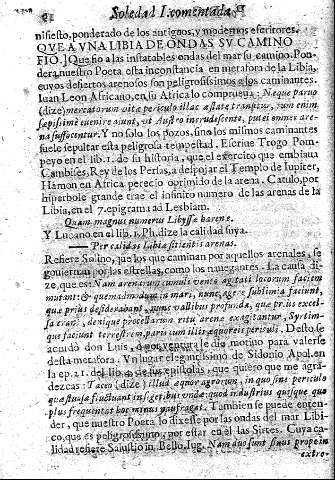 Soledad I. comentada.
nifiesto, ponderado de los antiguos, y modernos escritores.
QVE A VNA LIBIA DE ONDAS SV CAMINO
FIO.] Que fiò a las instables ondas del mar su camino. Pon
dera nuestro Poeta esta inconstancia en metafora de la Libia,
cuyos desiertos arenosos son peligrosissimos a los caminantes.
Iuan Leon Africano, en su Africa lo comprueua: Neque paruo
(dize) mercatorum vitæ periculo illac æstate transitur, tum enim
sæpissimè euenire aiunt, vt Austro inrudescente, putei omnes are-
na suffocentur. Y no solo los pozos, sino los mismos caminantes
suele sepultar esta peligrosa tempestad. Escriue Trogo Pom-
peyo en el lib. 1. de su historia, que el exercito que embiaua
Cambises, Rey de los Persas, a despojar el Templo de Iupiter,
Hamon en Africa perecio oprimido de la arena. Catulo, por
hiperbole grande trae el infinito numero de las arenas de la
Libia, en el 7. epigrama ad Lesbiam.
Quam magnus numerus Libyssæ harenæ.
Y Lucano en el lib. 1. Ph. dize la calidad suya.
Per calidas Libiæ sitientis arenas.
Refiere Solino, que los que caminan por aquellos arenales, se
gouiernan por las estrellas, como los nauegantes. La causa di-
ze, que es: Nam arenarum cumuli vento agitati locorum faciem
mutant: & quemadmodum in mari, nunc, agere sublimia faciunt,
que prius desiderabant, nunc vallibus profunda, que prius excel-
sa erant, denique procellarum ritu arenæ exagitantur, Syrtim-
que faciunt terrestrem, parìs cum illis æquoreis periculi. Desto se
acordò don Luis, ò por ventura le dio motiuo para valerse
desta metafora. Vn lugar elegantissimo de Sidonio Apol. en
la ep. 21. del lib. de sus epistolas, que quiero que me agra-
dezcas: Taceo (dize) illud æquor agrorum, in quo sine periculo
quæstuosæ fluctuant in segetibus ondæ quod industrius quisque quo
plus frequentat hoc minus naufragat. Tambien se puede enten-
der, que nuestro Poeta lo dixesse por las ondas del mar Libi-
co, que es peligrosissimo, por estar en el las Sirtes. Cuya ca-
lidad refiere Salustio in Bello, Iug. Nam duo sunt sinus propem
extre-